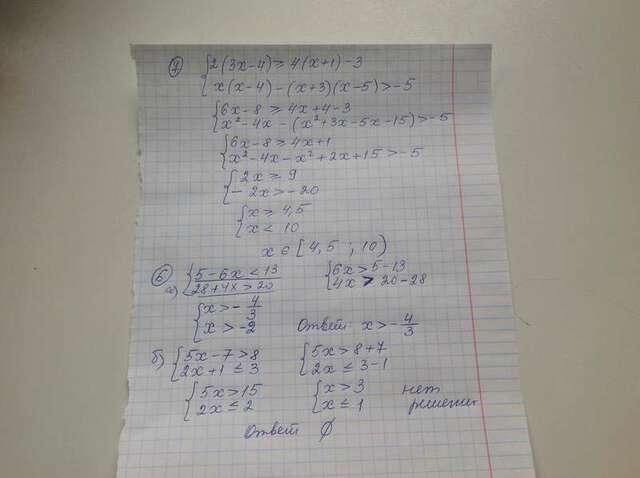 7) { 2(3x-4) ≥ 4(x+1)-3
x(x-4) - (x+3)(x-5) > -5
{ 6x-8 ≥ 4x+4-3
x²-4x-(x²+3x-5x-15) > -5
{ 6x-8 ≥ 4x+1
x²-4x-x²+2x+15 > -5
{ 2x ≥ 9
-2x > -20
{ x ≥ 4,5
x < 10
x ∈ [4,5 ; 10)
6) а) { 5-6x < 13 { 6x > 5-13
28+4x > 20 4x > 20-28
{ x > -4/3
x > -2 Ответ: x > -4/3
б) { 5x-7 > 8 { 5x > 8+7
2x+1 ≤ 3 2x ≤ 3-1
{ 5x > 15 { x > 3 нет
2x ≤ 2 x ≤ 1 решений
Ответ ∅